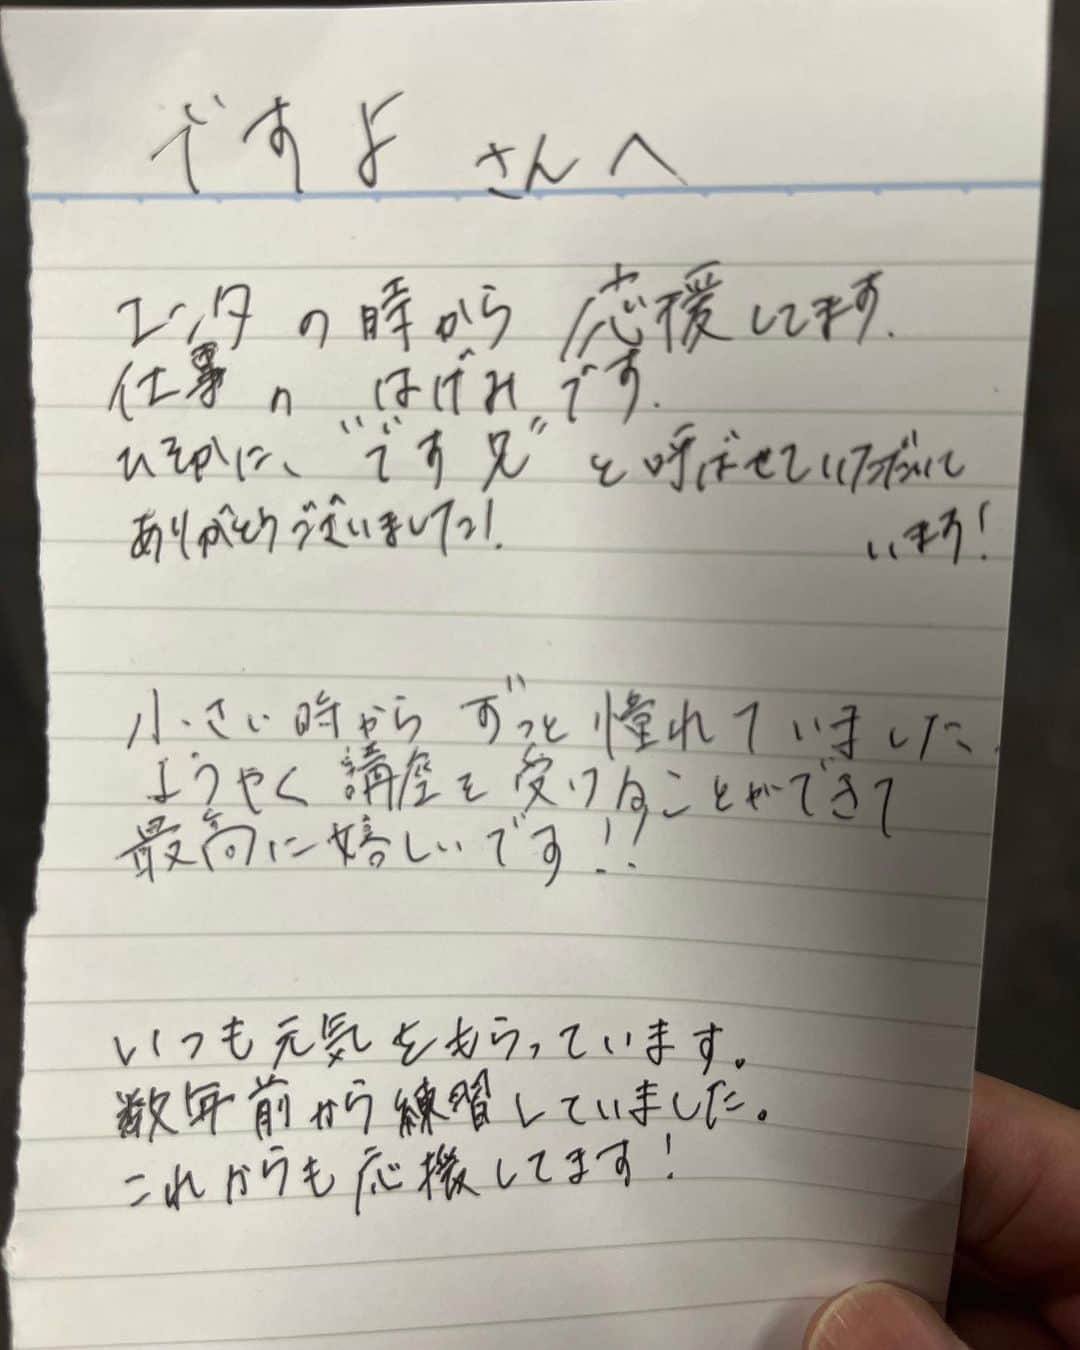 ですよ さんへ
エンタの時から応援してます.
仕事の はげみです.
ひそかに、"です兄"と呼ばせていただいて
います!
ありがとうございましたっ!
小さい時からずっと憧れていました.
ようやく講座を受けることができて
最高に嬉しいです!!
いつも元気をもらっています。
数年前から練習していました。
これからも応援してます!